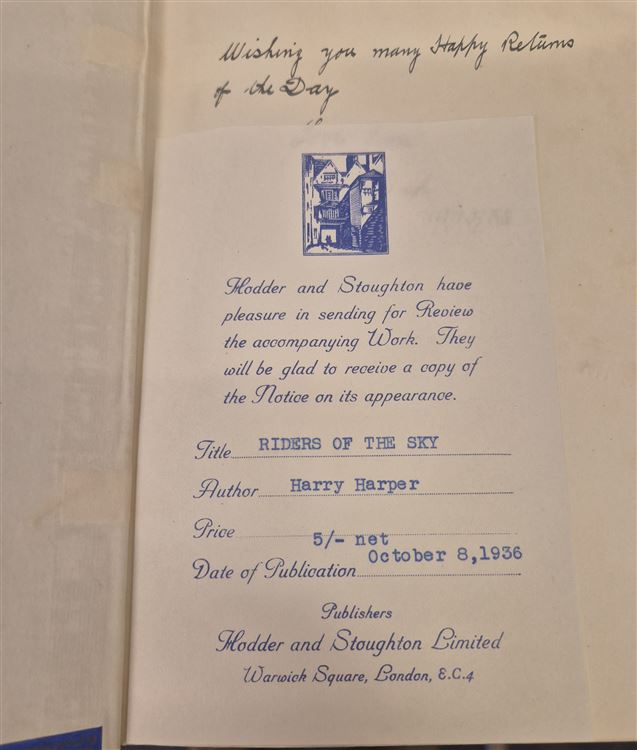 Wishing you many Happy Returns
of the Day
Hodder and Stoughton have
pleasure in sending for Review
the accompanying Work. They
will be glad to receive a copy of
the Notice on its appearance.
Title RIDERS OF THE SKY
Author Harry Harper
Price 5/- net
Date of Publication October 8,1936
Publishers
Hodder and Stoughton Limited
Warwick Square, London, E.C.4